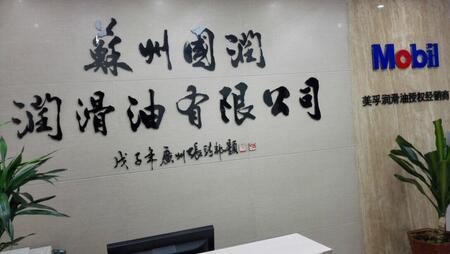 蘇州國潤
潤滑油有限公司
戊子年廣州張
題
Mobil
美孚润滑油授权经销商